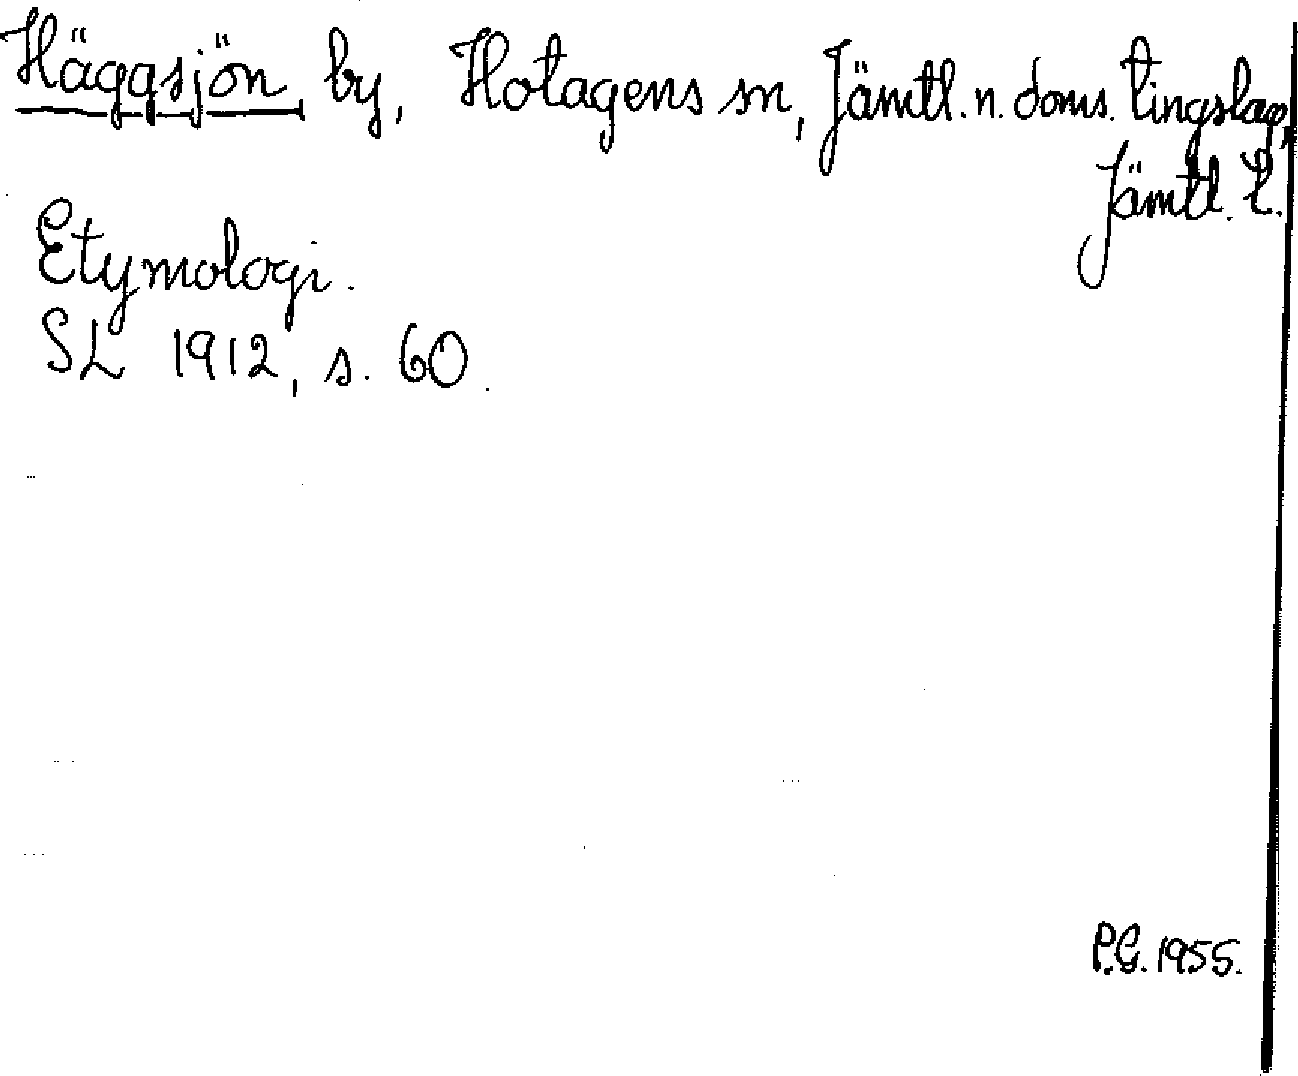 Häggsjön by, Hotagens sn, Jämtl. n. doms. tingslag,
Jämtl. l.
Etymologi.
SL 1912, s. 60.
P.G. 1955.